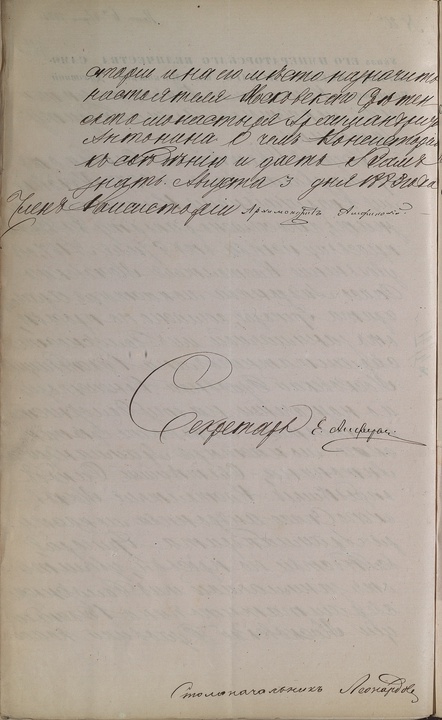 сторіи и на его мѣсто назначить
настоятеля Московскаго Срѣтен
скаго монастыря Архимандрита
Антонина о чемъ Консисторія
къ свѣдѣнію и даетъ Вамъ
знать. Августа 3 дня года
Членъ Консисторіи Архимандритъ
Секретарь
Столоначальникъ Леонардовъ